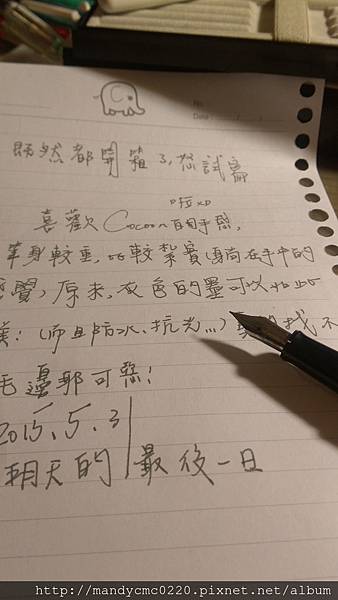 No.
Date
既然都開箱了,就試寫
啦 xD
喜歡 Cocoon 的手感,
筆身較重,比較紮實(身尚在手中的
感覺)原來,灰色的墨可以如此
美!(而且防水、抗光...)果 找不
毛邊耶可惡!
2015.5.31
明天的 最後一日
http://mandycmc0220.pixnet.net/album